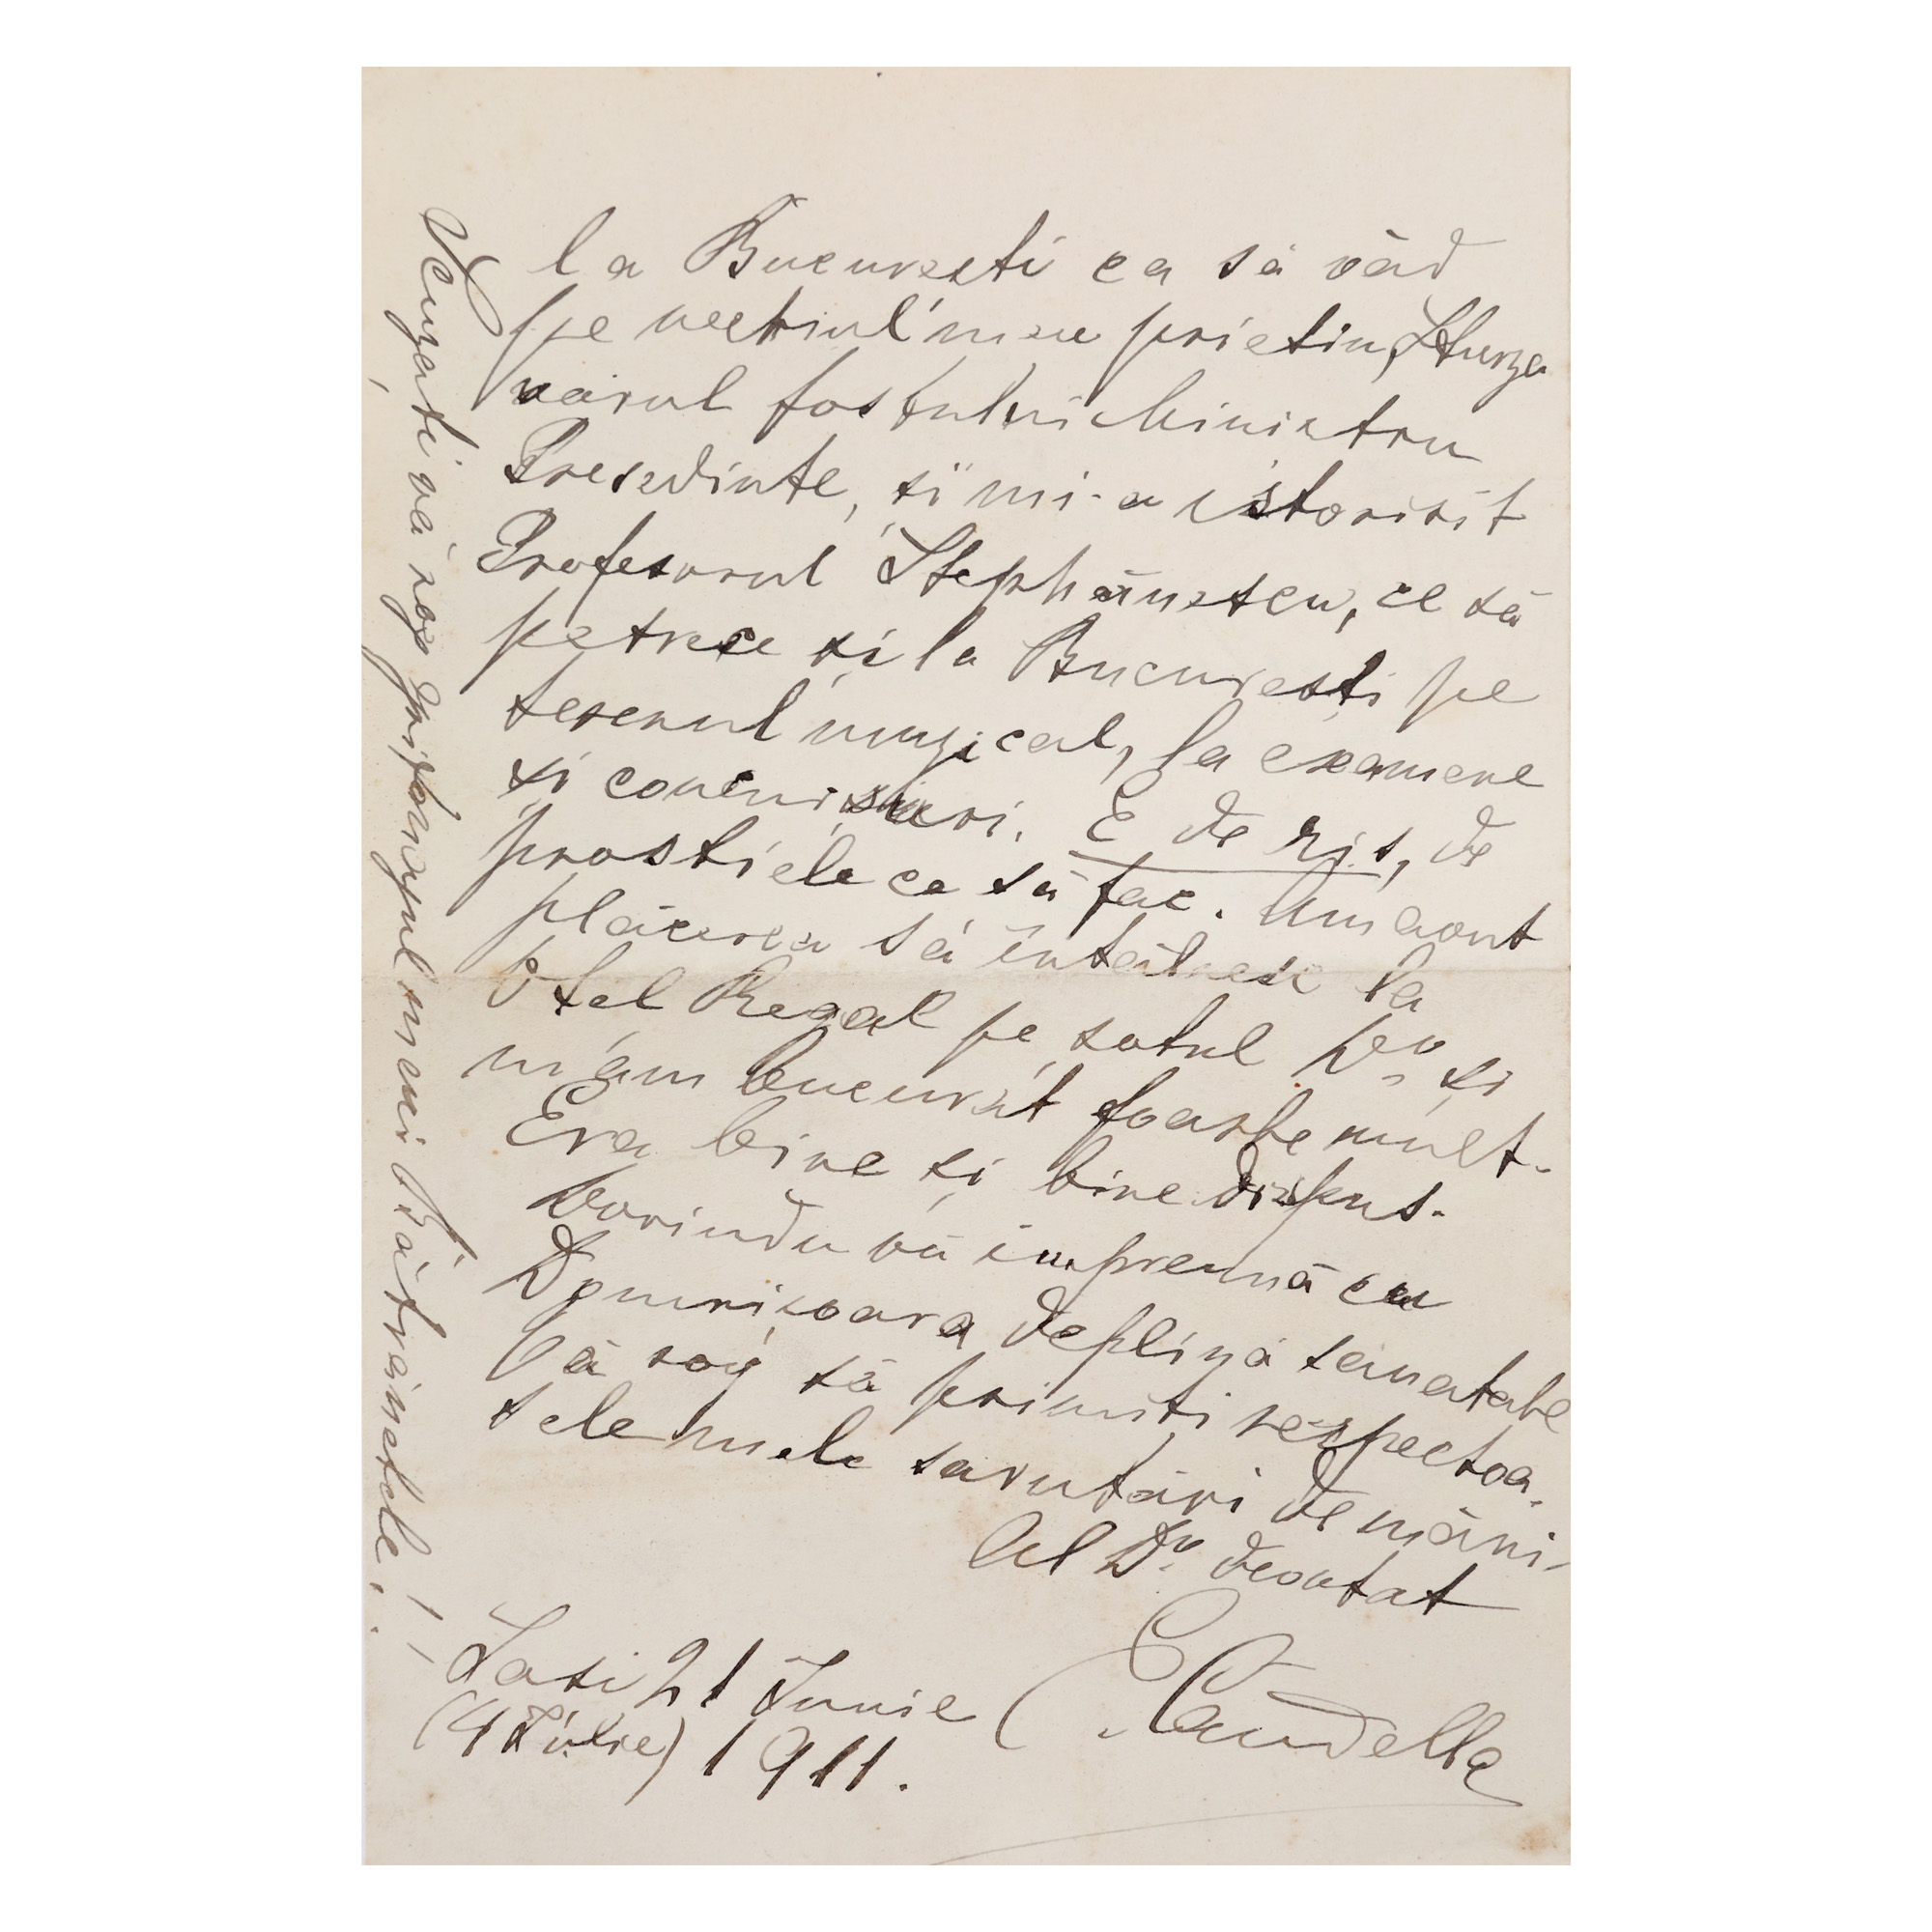 la Bucuresti ca să văd
pe vechiul meu prietin, Sturza
vărul fostului Ministru
Presedinte, și mi-a istorisit
Profesorul Stephănescu, ce să
petrece și la București pe
terenul muzical, la examene
și concursuri. E de rîs, de
prostiele ce să fac. Am avut
plăcerea să întâlnesc la
Otel Regal pe soțul Dv. și
m'am bucurat foarte mult.
Era bine și bine dispus.
Dorindu vă impreună cu
Domnișoara deplină sănatate
Vă rog să primiți respectoa-
sele mele sărutări de mâni.
Al Dv. devotat
E Caudella
Iasi 21 Iunie
(4 Iulie) 1911.
Scuzați vă rog grifonajul meu Bătrănețele!